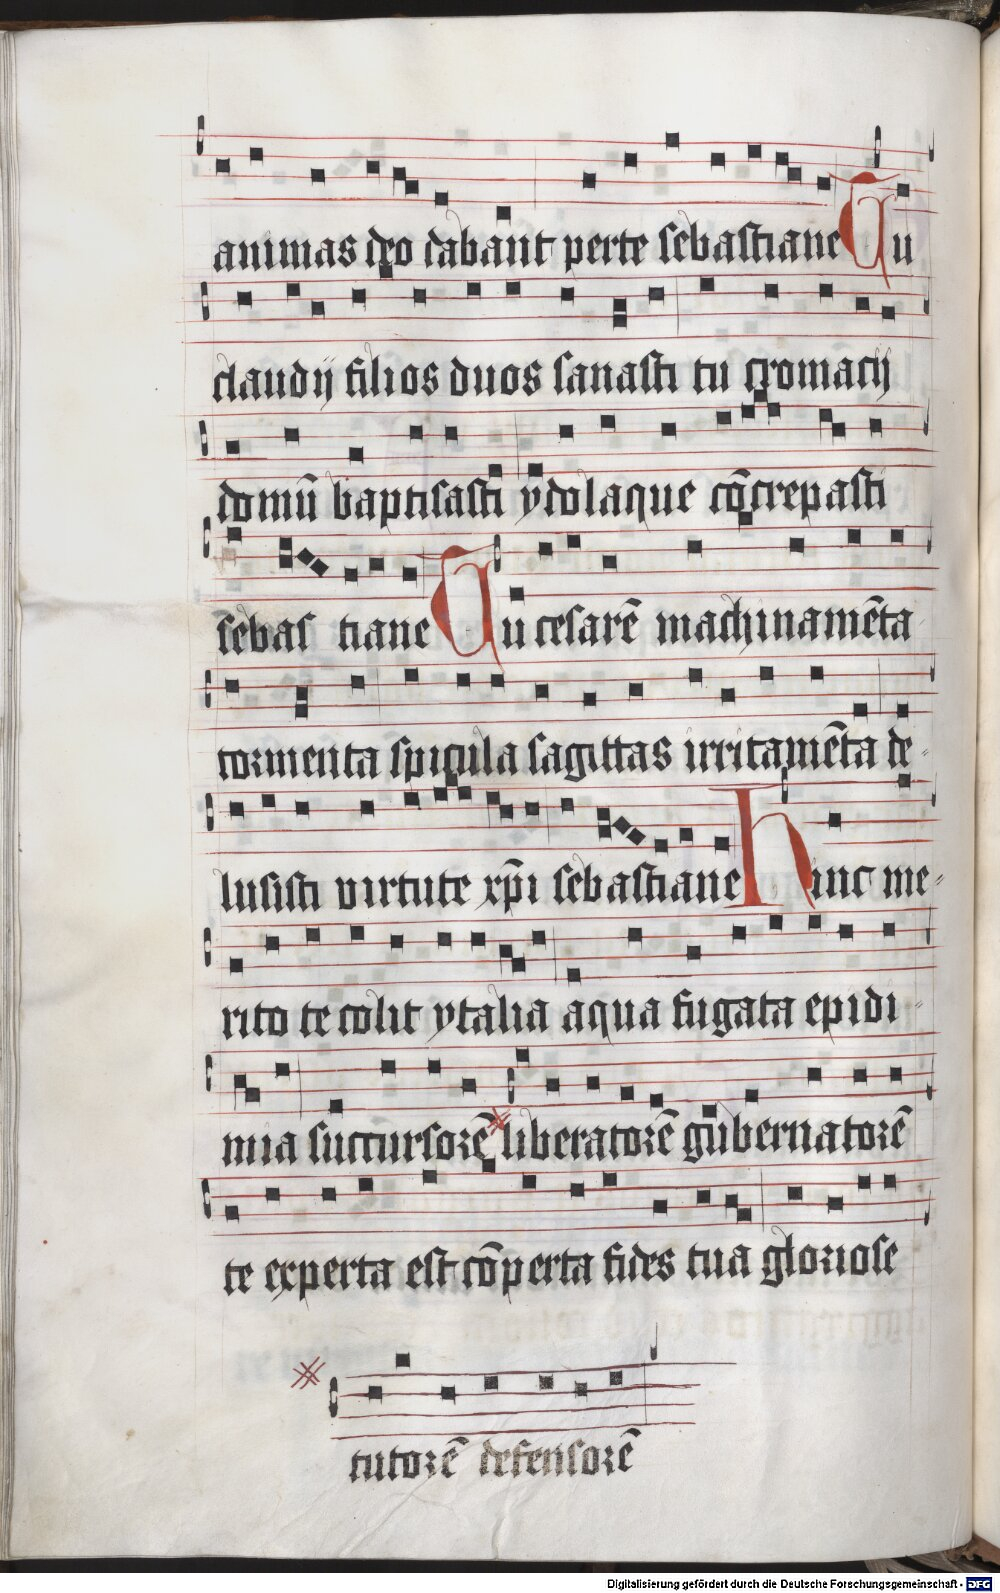 animas deo dabant per te sebastiane Tu
claudij filios duos sanasti tu cromacij
domū baptisasti ydolaque cōcrepasti
sebas tiane Tu cesarē machinamēta
tormenta spicula sagittas irritamēta de-
lusisti virtute xp̄i sebastiane Hinc me-
rito te colit ytalia a qua fugata epidi-
mia succursorē liberatorē gubernatorē
te experta est cōperta fides tua gloriose
tutorē defensorē
Digitalisierung gefördert durch die Deutsche Forschungsgemeinschaft - DFG